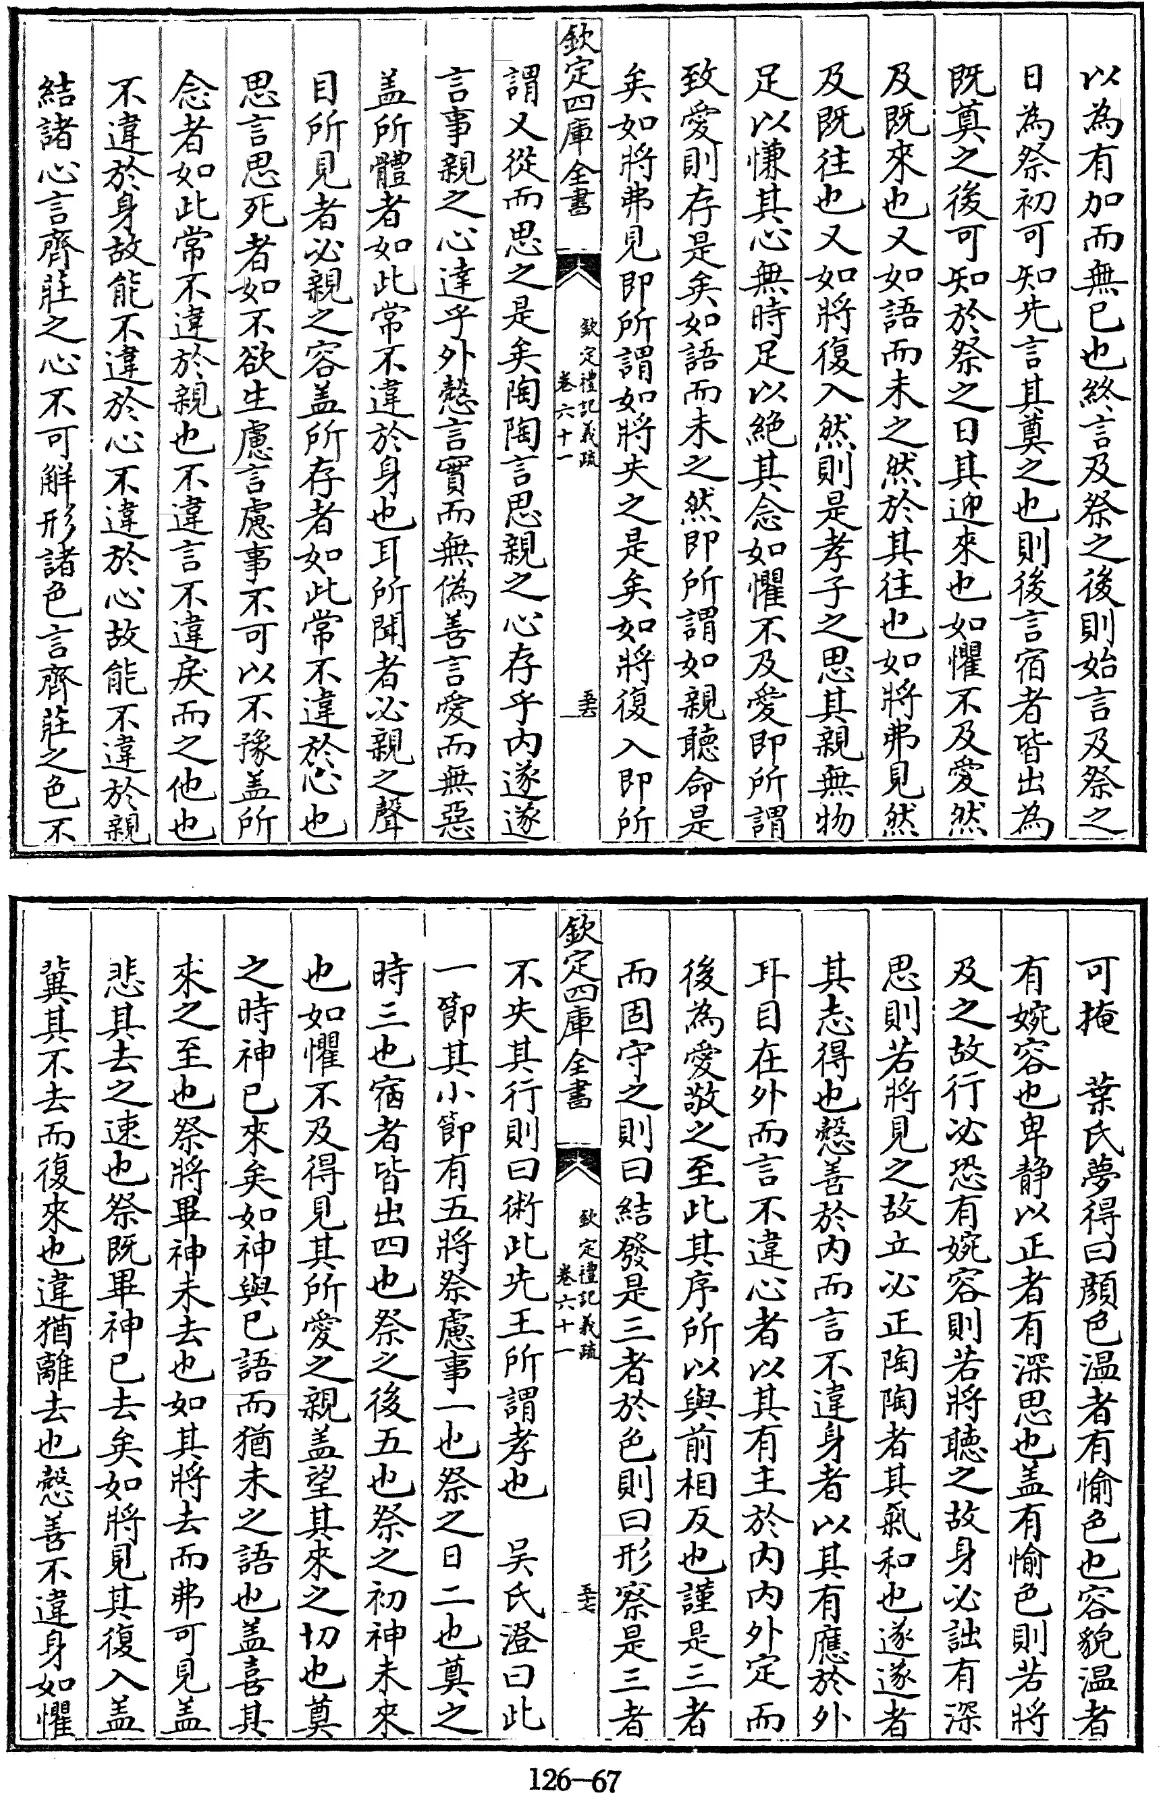 以為有加而無已也終言及祭之後則始言及祭之
日為祭初可知先言其奠之也則後言宿者皆出為
既奠之後可知於祭之日其迎來也如懼不及愛然
及既來也又如語而未之然於其往也如將弗見然
及既往也又如將復入然則是孝子之思其親無物
足以慊其心無時足以絶其念如懼不及愛即所謂
致愛則存是矣如語而未之然即所謂如親聽命是
矣如將弗見即所謂如將失之是矣如將復入即所
欽定四庫全書
欽定禮記義疏
卷六十一
謂又從而思之是矣陶陶言思親之心存乎内遂遂
言事親之心達乎外慤言實而無偽善言愛而無惡
盖所體者如此常不違於身也耳所聞者必親之聲
目所見者必親之容盖所存者如此常不違於心也
思言思死者如不欲生慮言慮事不可以不豫盖所
念者如此常不違於親也不違言不違戾而之他也
不違於身故能不違於心不違於心故能不違於親
結諸心言齊莊之心不可解形諸色言齊莊之色不
可掩　葉氏夢得曰顔色溫者有愉色也容貌溫者
有婉容也卑静以正者有深思也盖有愉色則若將
及之故行必恐有婉容則若將聽之故身必詘有深
思則若將見之故立必正陶陶者其氣和也遂遂者
其志得也慤善於内而言不違身者以其有應於外
耳目在外而言不違心者以其有主於内内外定而
後為愛敬之至此其序所以與前相反也謹是三者
而固守之則曰結發是三者於色則曰形察是三者
欽定四庫全書
欽定禮記義疏
卷六十一
不失其行則曰術此先王所謂孝也　吳氏澄曰此
一節其小節有五將祭慮事一也祭之日二也奠之
時三也宿者皆出四也祭之後五也祭之初神未來
也如懼不及得見其所愛之親盖望其來之切也奠
之時神已來矣如神與已語而猶未之語也盖喜其
來之至也祭將畢神未去也如其將去而弗可見盖
悲其去之速也祭既畢神已去矣如將見其復入盖
冀其不去而復來也違猶離去也慤善不違身如懼
126—67